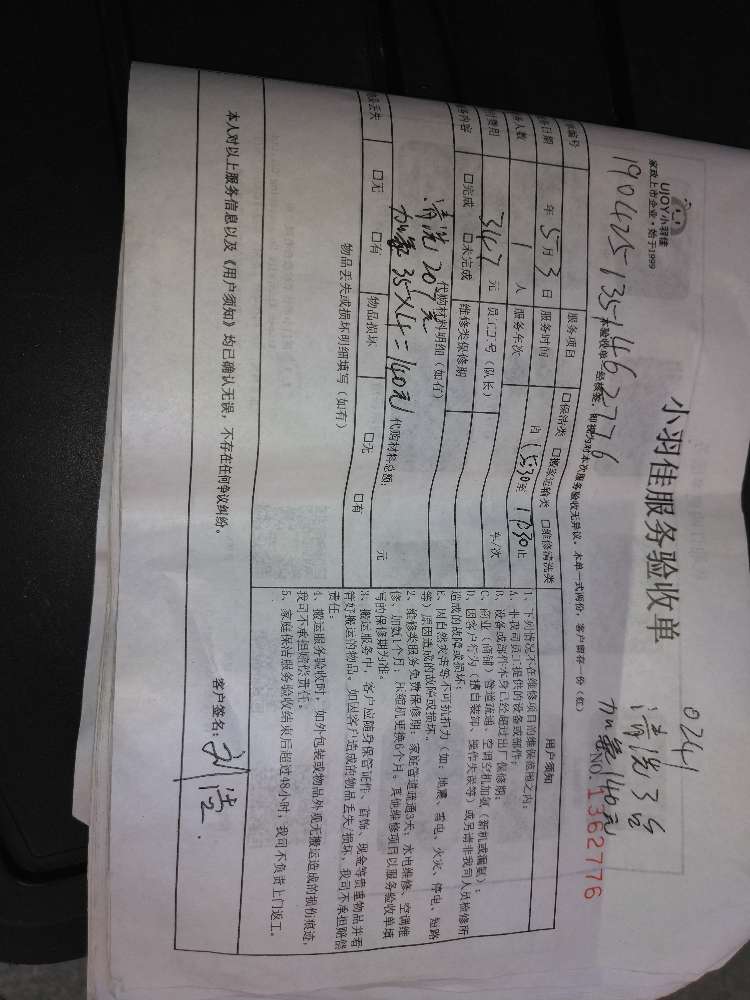 UJOY小羽佳
家政上市企业·始于1999
小羽佳服务验收单
0241
清洗3台
加氟140元
NO. 1362776
190425-1351462776
本验收单一经核签,即视为对本次服务验收无异议。本单一式两份,客户留存一份(红)
单编号
服务项目 □保洁类 □搬家运输类 □维修清洗类
务日期 年5月3日 服务时间 自15:30至17:30止
务人数 1人 服务车次 车/次
付费用 347元 员(工)号(队长)
务内容 □完成 □未完成 维修类保修期
代购材料明细(如有)
清洗207元
加氟35×4=140元
代购材料总额: 元
品丢失 □无 □有 物品损坏 □无 □有
物品丢失或损坏明细填写(如有)
用户须知
1、下列情况不在维修项目的维保范围之内:
A、非我司员工提供的设备或部件;
B、设备或部件本身已经超过出厂保修期;
C、商业(商铺)管道疏通、空调空机加氟(新机或漏氟);
D、因客户行为(擅自装卸、操作失误等)或另请非我司人员检修所造成的故障或损坏;
E、因自然灾害等不可抗拒力(如:地震、雷电、火灾、停电、短路等)原因造成的故障或损坏。
2、维修类服务免费保修期:家庭管道疏通3天;水电维修、空调维修、加氟1个月;压缩机更换6个月。其他维修项目以服务验收单填写的保修期为准。
3、搬运服务中,客户应随身保管证件、首饰、现金等贵重物品并看管好搬运的物品。如因客户造成的物品丢失/损坏,我司不承担赔偿责任;
4、搬运服务验收时,如外包装或物品外观无搬运造成的损伤痕迹,我司不承担赔偿责任。
5、家庭保洁服务验收结束后超过48小时,我司不负责上门返工。
本人对以上服务信息以及《用户须知》均已确认无误,不存在任何争议纠纷。
客户签名:刘浩